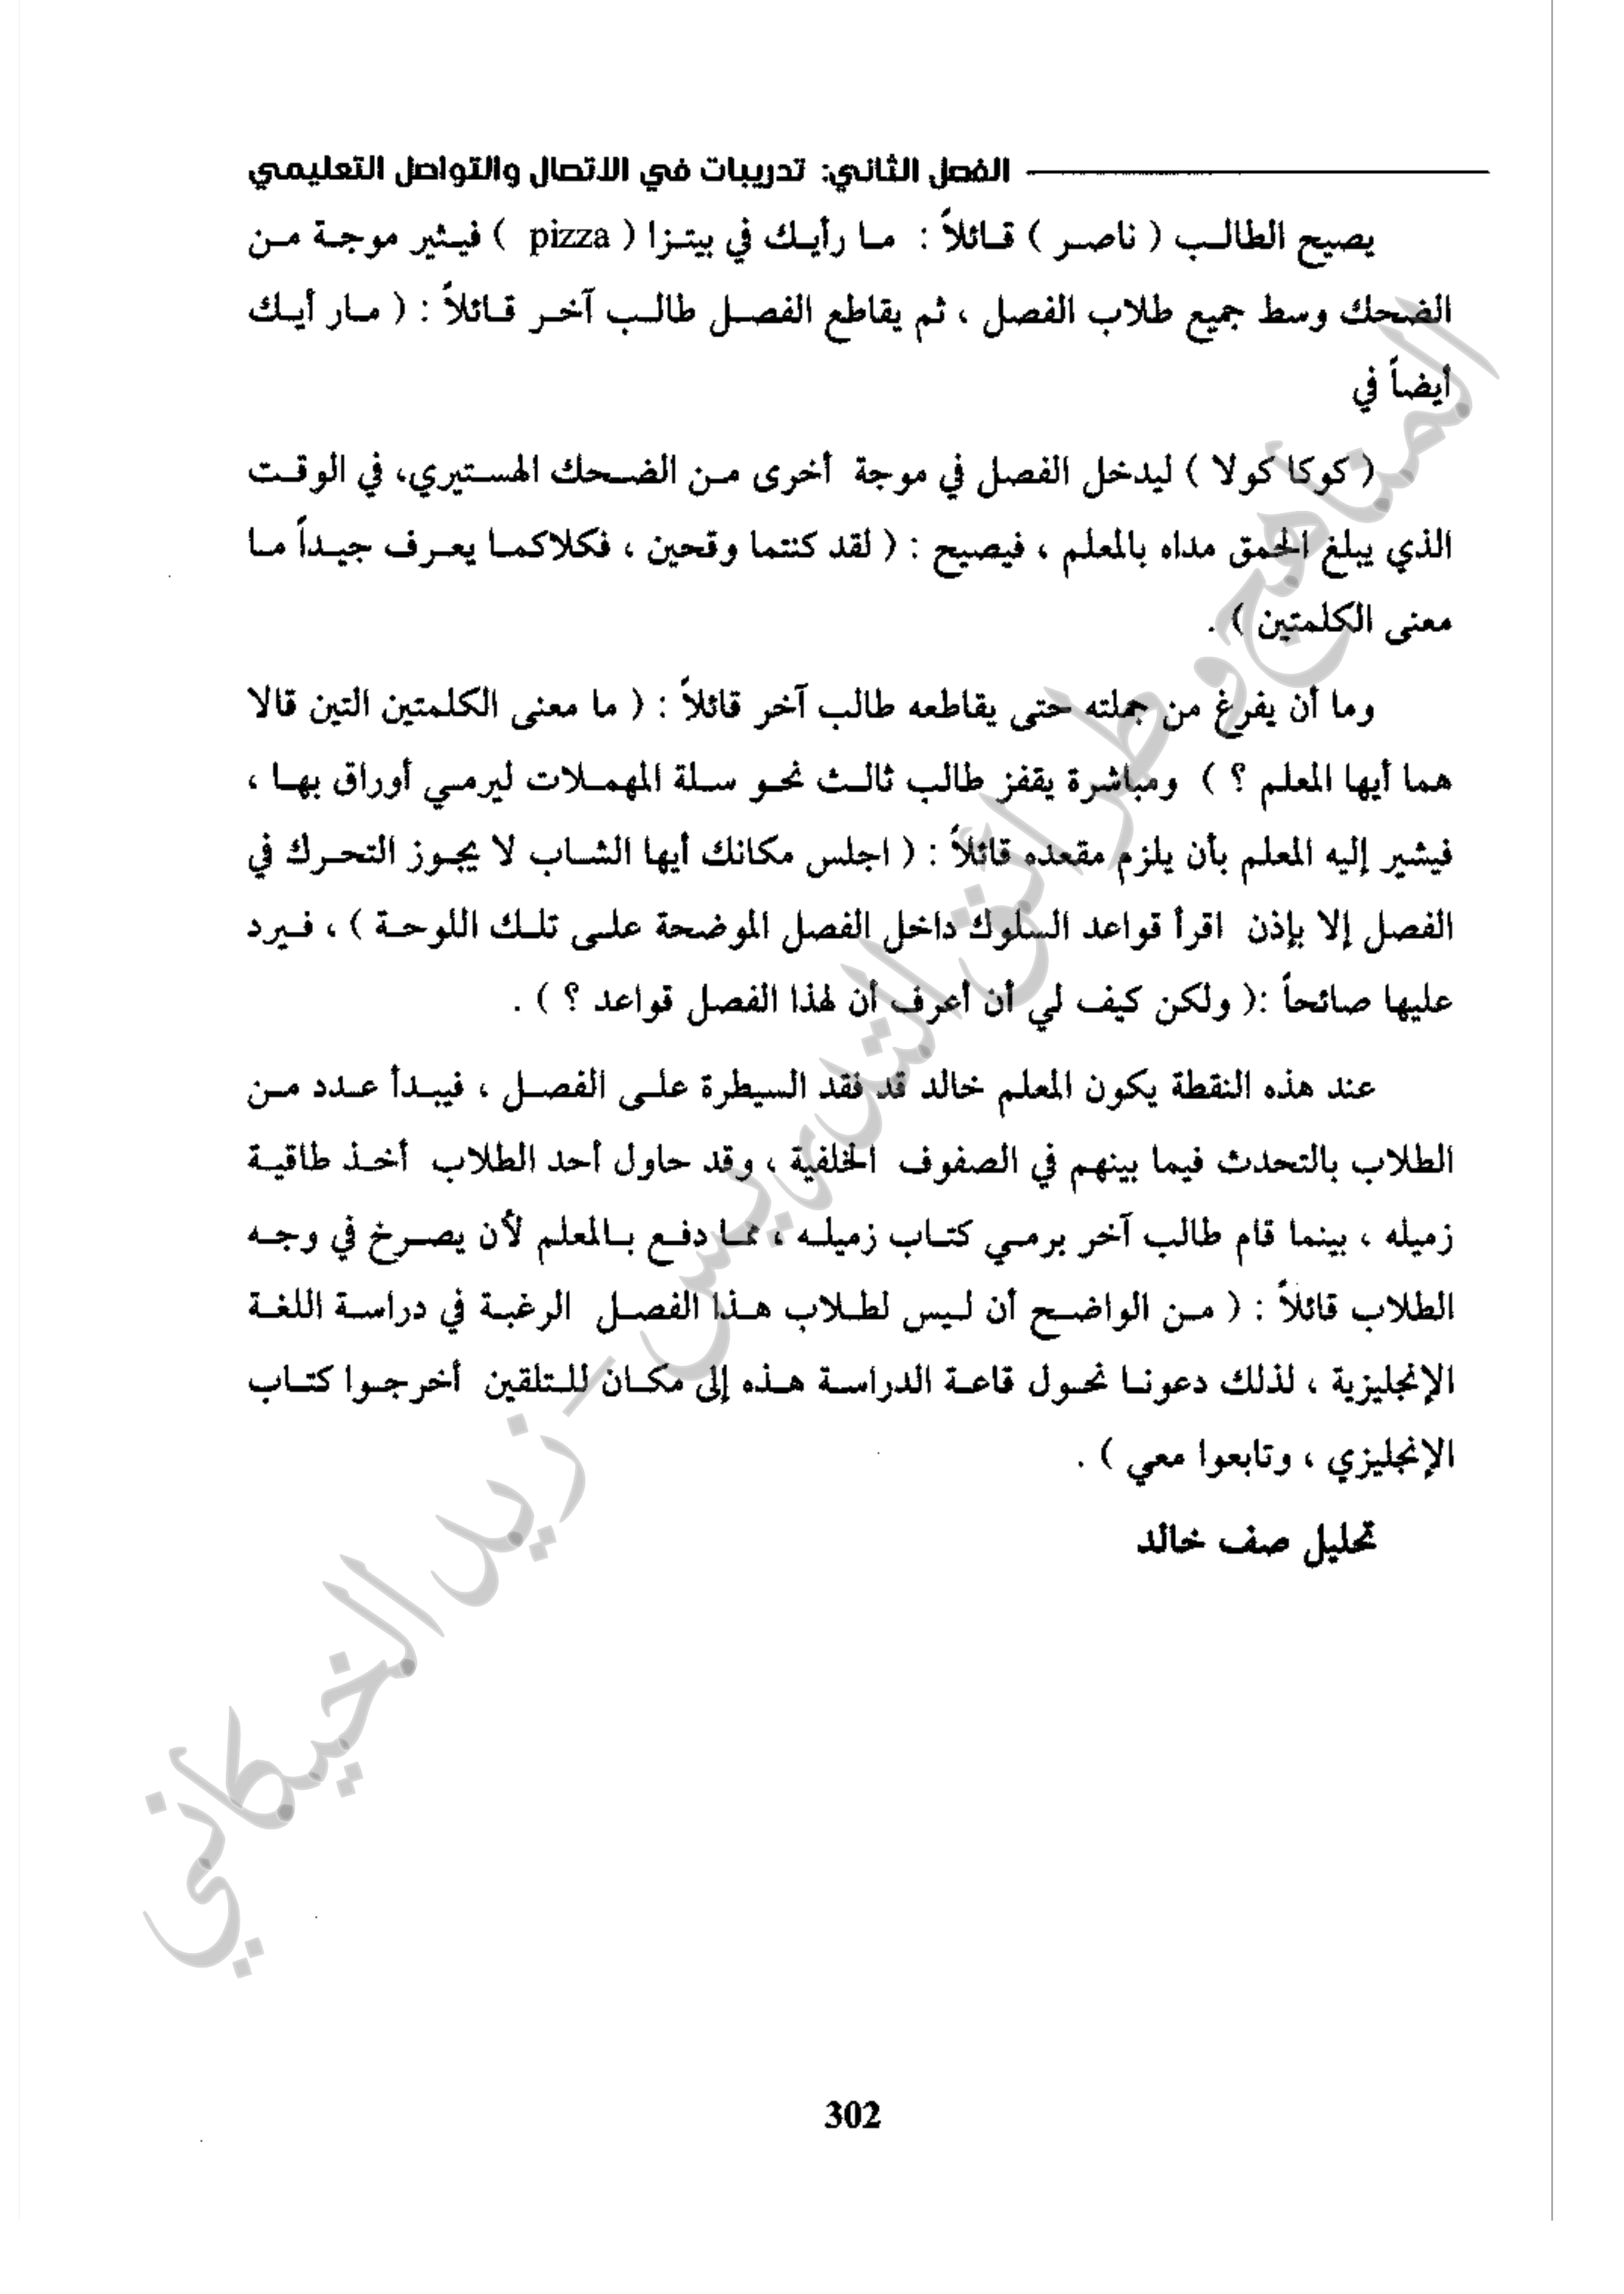 الفصل الثاني: تدريبات في الاتصال والتواصل التعليمي
يصيح الطالب ( ناصر ) قائلاً : ما رأيك في بيتزا ( pizza ) فيثير موجة من
الضحك وسط جميع طلاب الفصل ، ثم يقاطع الفصل طالب آخر قائلاً : ( مار أيك
أيضاً في
( كوكا كولا ) ليدخل الفصل في موجة أخرى من الضحك الهستيري، في الوقت
الذي يبلغ الحمق مداه بالمعلم ، فيصيح : ( لقد كنتما وقحين ، فكلاكما يعرف جيداً ما
معنى الكلمتين ) .
وما أن يفرغ من جملته حتى يقاطعه طالب آخر قائلاً : ( ما معنى الكلمتين التين قالا
هما أيها المعلم ؟ ) ومباشرة يقفز طالب ثالث نحو سلة المهملات ليرمي أوراق بها ،
فيشير إليه المعلم بأن يلزم مقعده قائلاً : ( اجلس مكانك أيها الشاب لا يجوز التحرك في
الفصل إلا بإذن اقرأ قواعد السلوك داخل الفصل الموضحة على تلك اللوحة ) ، فيرد
عليها صائحاً :( ولكن كيف لي أن أعرف أن لهذا الفصل قواعد ؟ ) .
عند هذه النقطة يكون المعلم خالد قد فقد السيطرة على الفصل ، فيبدأ عدد من
الطلاب بالتحدث فيما بينهم في الصفوف الخلفية ، وقد حاول أحد الطلاب أخذ طاقية
زميله ، بينما قام طالب آخر برمي كتاب زميله ، مما دفع بالمعلم لأن يصرخ في وجه
الطلاب قائلاً : ( من الواضح أن ليس لطلاب هذا الفصل الرغبة في دراسة اللغة
الإنجليزية ، لذلك دعونا نحول قاعة الدراسة هذه إلى مكان للتلقين أخرجوا كتاب
الإنجليزي ، وتابعوا معي ) .
تحليل صف خالد
المناهج وطرائق التدريس - زيد الخيكاني
302